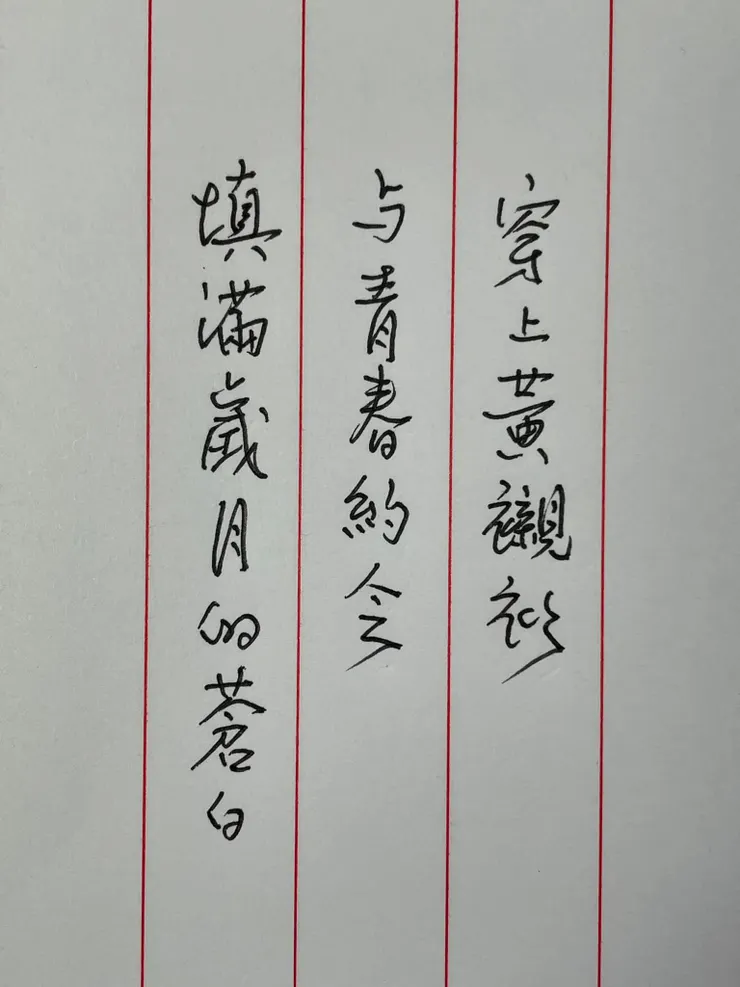 穿上黃襯衫
与青春約会
填滿歲月的蒼白